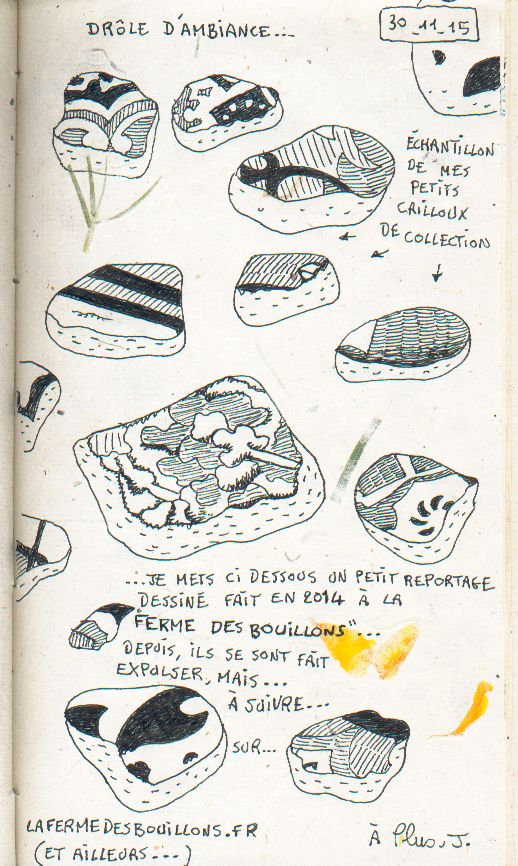 DRÔLE D'AMBIANCE...
30_11_15
ÉCHANTILLON
DE MES
PETITS
CAILLOUX
DE COLLECTION
...JE METS CI DESSOUS UN PETIT REPORTAGE
DESSINÉ FAIT EN 2014 À LA
FERME DES BOUILLONS"...
DEPUIS, ILS SE SONT FAIT
EXPULSER, MAIS...
À SUIVRE...
SUR...
LAFERMEDESBOUILLONS.FR
(ET AILLEURS...)
À Plus. J.